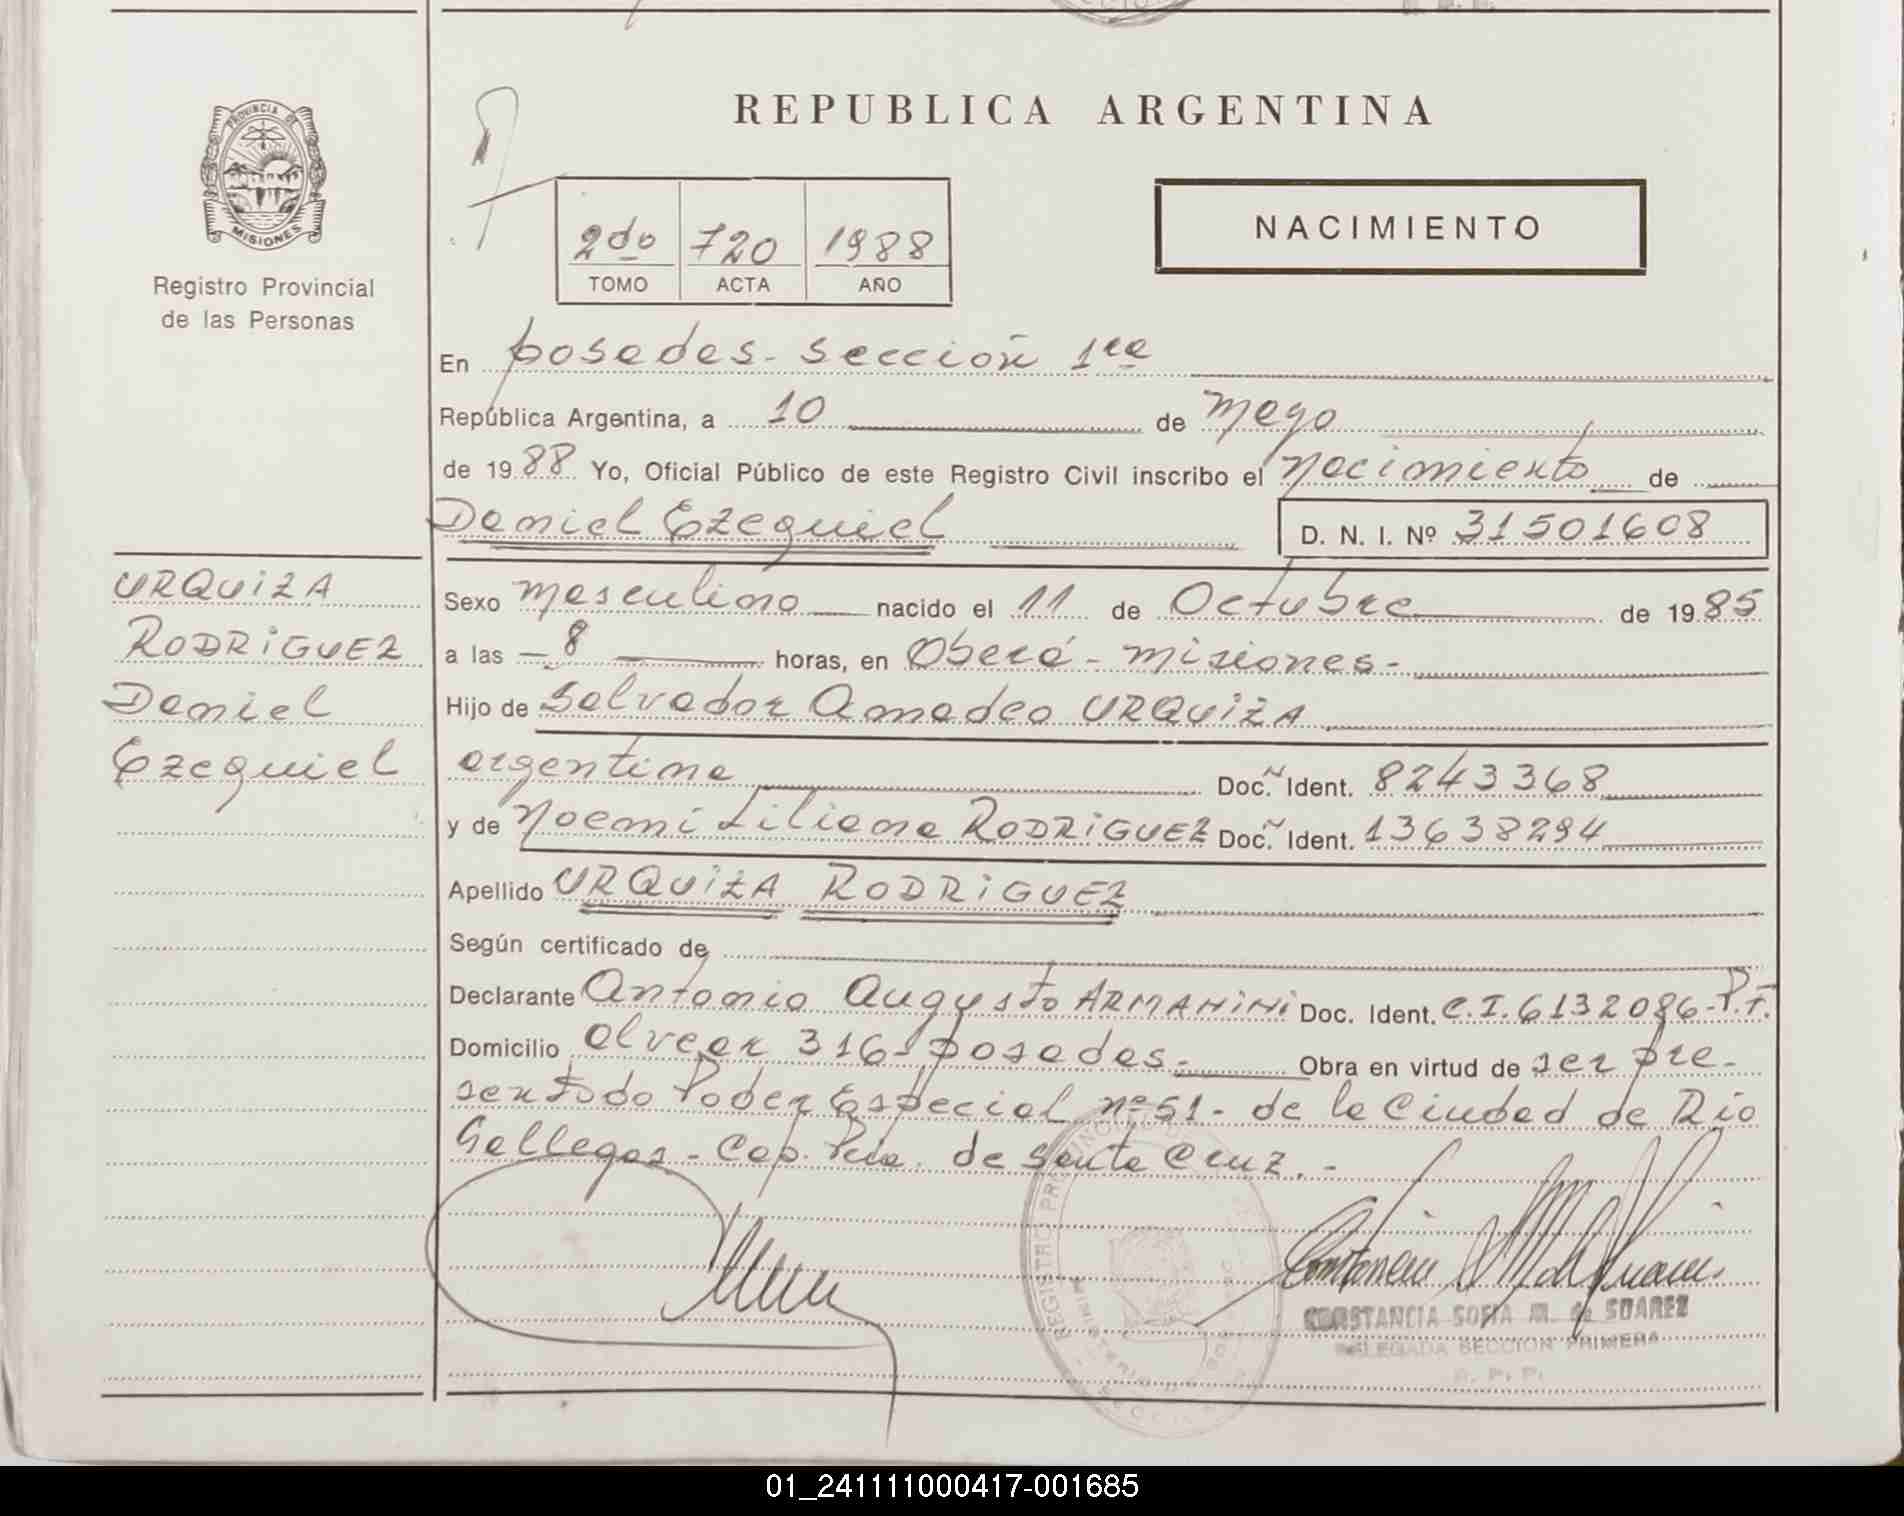 REPUBLICA ARGENTINA
PROVINCIA DE
MISIONES
Registro Provincial
de las Personas
2do 720 1988
TOMO ACTA AÑO
NACIMIENTO
En posadas - sección 1ra
República Argentina, a 10 de mayo
de 1988 Yo, Oficial Público de este Registro Civil inscribo el nacimiento de
Daniel Ezequiel D. N. I. Nº 31501608
URQUIZA
RODRIGUEZ
Daniel
Ezequiel
Sexo masculino nacido el 11 de Octubre de 1985
a las - 8 horas, en Oberá - misiones -
Hijo de Salvador Amadeo URQUIZA
argentina Doc. Ident. 8243368
y de Noemi Liliana RODRIGUEZ Doc. Ident. 13638294
Apellido URQUIZA RODRIGUEZ
Según certificado de
Declarante Antonio Augusto ARMANINI Doc. Ident. C.I. 6132086-P.F.
Domicilio alvear 316 - posadas - Obra en virtud de ser pre-
sentado Poder Especial nº 51 - de la Ciudad de Rio
Gallegos - Cap. Pcia. de Santa Cruz. -
REGISTRO PROVINCIAL DE
CONSTANCIA SOFIA M. de SUAREZ
DELEGADA SECCION PRIMERA
R. P. P.
01_241111000417-001685